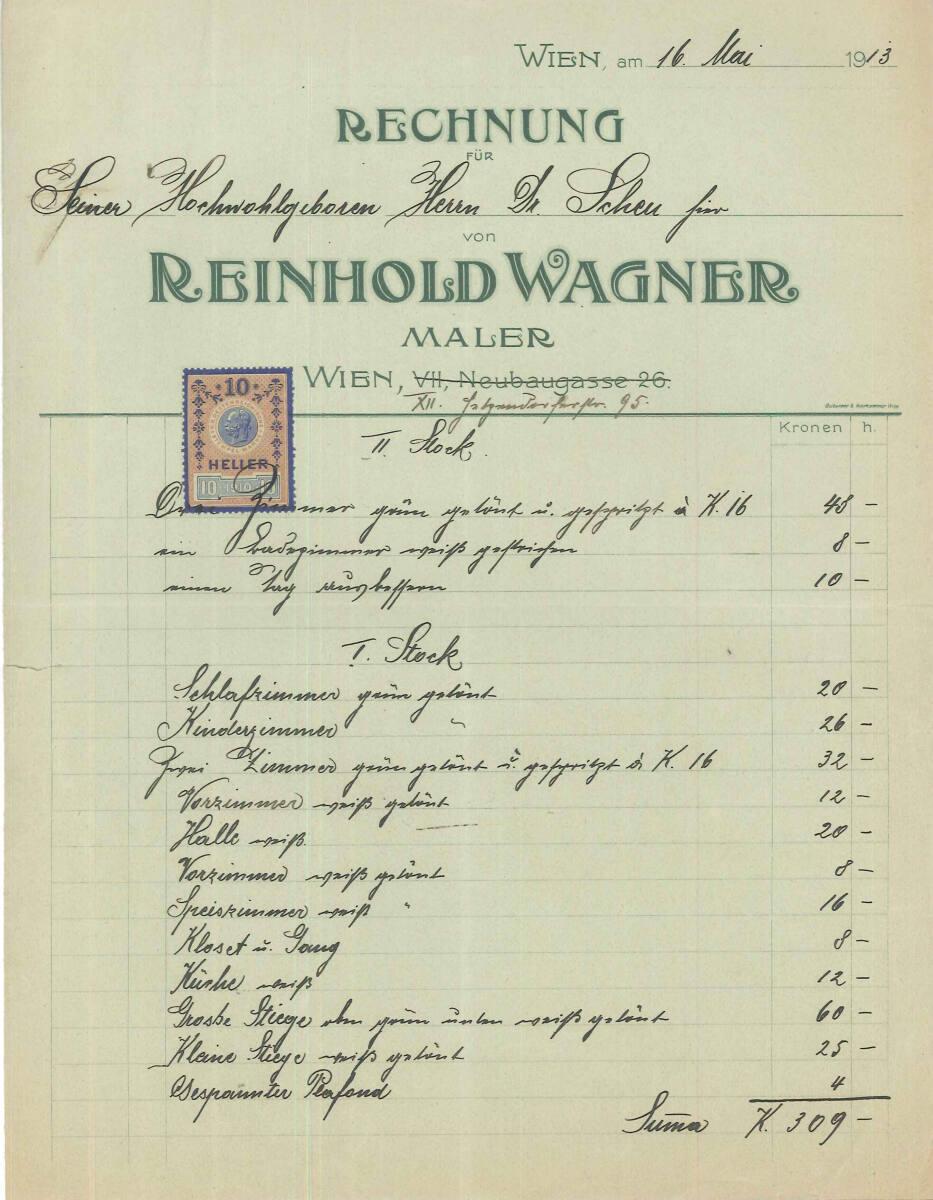 WIEN, am 16. Mai 1913
RECHNUNG
FÜR
Seiner Hochwohlgeboren Herrn Dr. Scheu hier
von
REINHOLD WAGNER
MALER
WIEN, VII, Neubaugasse 26.
XII. Hetzendorferstr. 95.
10
HELLER
10 1910 10
Kronen h.
II. Stock.
Drei Zimmer grün getönt u. gespritzt à K. 16 48 –
ein Badezimmer weiß gestrichen 8 –
einen Tag ausbessern 10 –
I. Stock
Schlafzimmer grün getönt 20 –
Kinderzimmer " 26 –
Zwei Zimmer grün getönt u. gespritzt à K. 16 32 –
Vorzimmer weiß getönt 12 –
Halle weiß. 20 –
Vorzimmer weiß getönt 8 –
Speiszimmer weiß " 16 –
Kloset u. Gang 8 –
Küche weiß 12 –
Große Stiege oben grün unten weiß getönt 60 –
Kleine Stiege weiß getönt 25 –
Gespannter Plafond 4
Summa K. 309 –